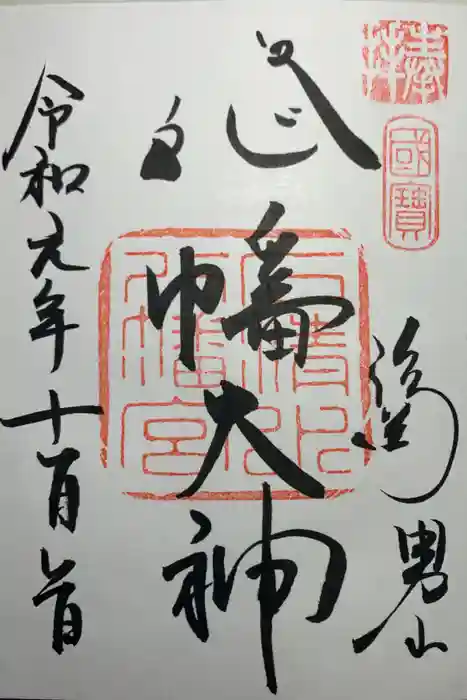 奉拝
國寶
男山
八幡大神
石清水
八幡宮
令和元年十一月